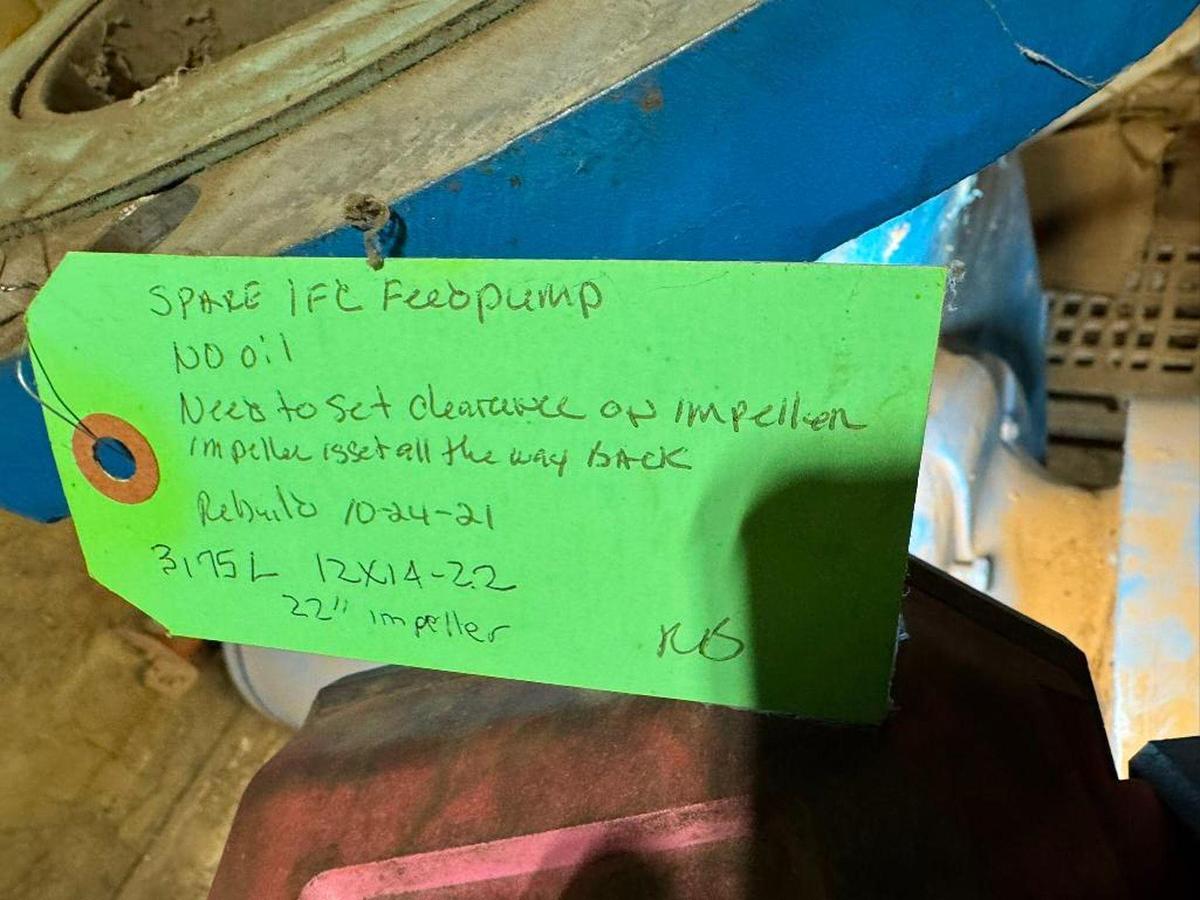 SPARE 1FC Feedpump
NO oil
Need to set clearance on impeller
impeller is set all the way BACK
Rebuild 10-24-21
3175L 12X14-22
22" impeller